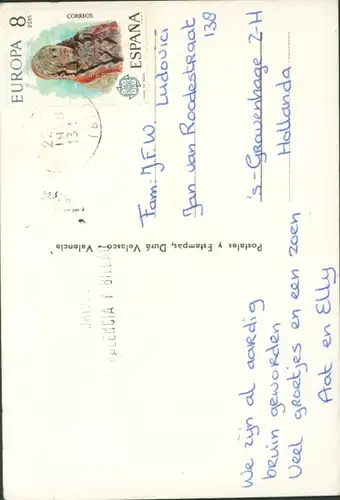 We zijn al aardig
bruin geworden
Veel groetjes en een zoen
Aat en Elly
Postales y Estampas, Durá Velasco - Valencia
VALENCIA Y BILBAO
EUROPA 8 PTAS
CORREOS
ESPAÑA
Fam: J.F.W. Ludovici
Jan van Roodestraat
138
's-Gravenhage Z-H
Hollanda